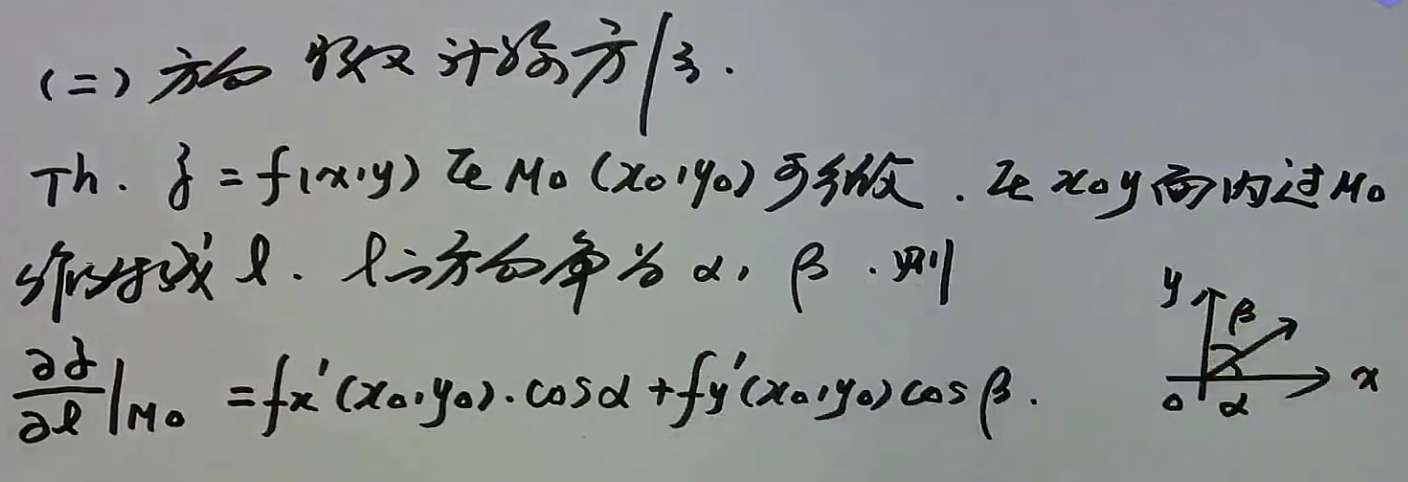 (二) 方向导数计算方法.
Th. z = f(x,y) 在 M₀ (x₀,y₀) 可微. 在 xoy 面内过 M₀
作射线 l. l 的方向角为 α, β. 则
∂z/∂l|M₀ = fx'(x₀,y₀)·cosα + fy'(x₀,y₀)cosβ.
y β
o α x